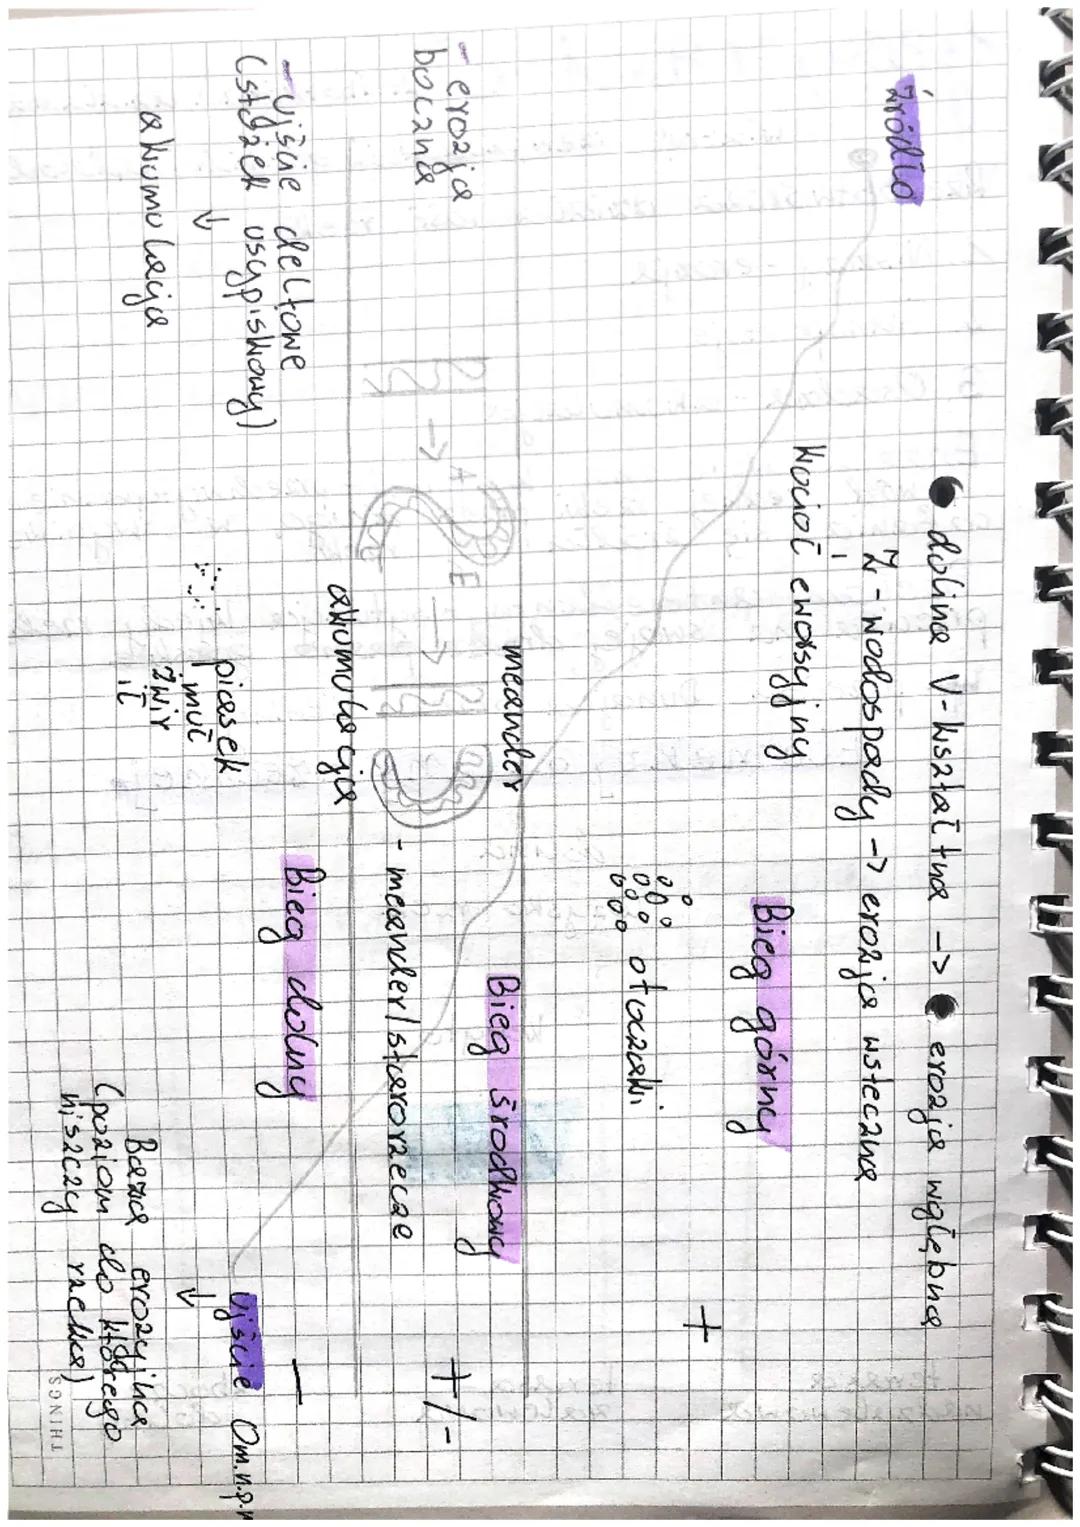 ● dolina V-kształtna -> ● erozja wgłębna
ż - wodospady -> erozja wsteczna
źródło
kocioł eworsyjny
Bieg górny
+
otoczaki
meander
Bieg środkowy
+/-
- erozja
boczna
A
E
- meander/starorzecze
akumulacja
Bieg dolny
-
- ujście deltowe
(stożek usypiskowy)
↓
akumulacja
piasek
muł
żwir
ił
ujście 0m.n.p.m
↓
Baza erozyjna
(poziom do którego
niszczy rzeka)
THINGS